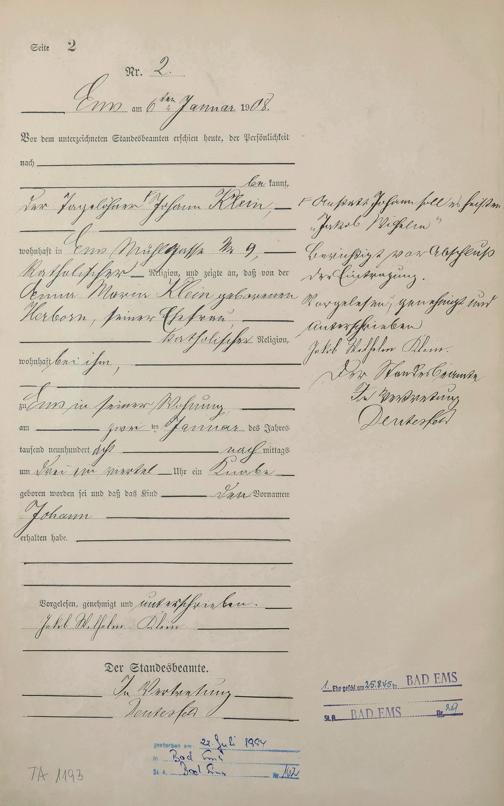 Seite 2
Nr. 2.
Ems am 6ten Januar 1908.
Vor dem unterzeichneten Standesbeamten erschien heute, der Persönlichkeit
nach
bekannt,
der Tagelöhner Johann Klein,
wohnhaft in Ems Mühlgasse No 9,
katholischer Religion, und zeigte an, daß von der
Anna Maria Klein geborenen
Herborn, seiner Ehefrau,
katholischer Religion,
wohnhaft bei ihm,
zu Ems in seiner Wohnung,
am zwei ten Januar des Jahres
tausend neunhundert acht nach mittags
um drei ein viertel Uhr ein Knabe
geboren worden sei und daß das Kind den Vornamen
Johann
erhalten habe.
Vorgelesen, genehmigt und unterschrieben.
Jakob Wilhelm Klein
Der Standesbeamte.
In Vertretung
Anstatt Johann soll es heißen
„Jakob Wilhelm"
Berichtigt vor Abschluß
der Eintragung.
Vorgelesen, genehmigt und
unterschrieben
Jakob Wilhelm Klein.
Der Standesbeamte
In Vertretung
1. Ehe geschl. am in BAD EMS
St. A. BAD EMS Nr.
gestorben am 22. Juli
in Bad Ems
St. A. Bad Ems Nr.
TA 1193